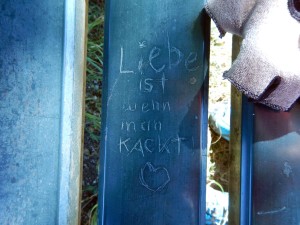 Liebe
ist
wenn
man
KACKT